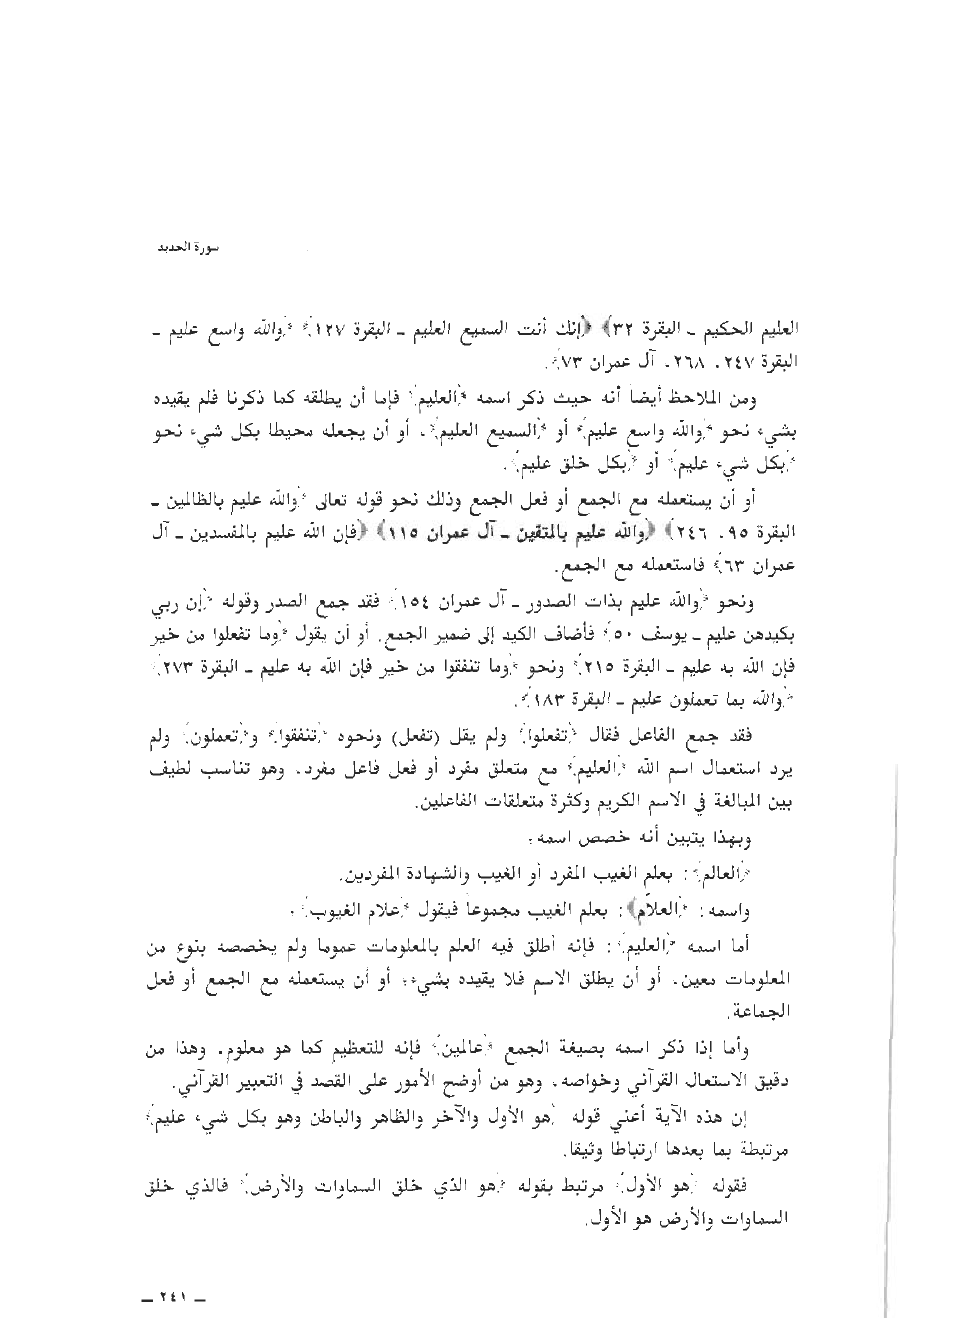 سورة الحديد
العليم الحكيم ـ البقرة ٣٢﴾ ﴿إنك أنت السميع العليم ـ البقرة ١٢٧﴾ ﴿والله واسع عليم ـ
البقرة ٢٤٧، ٢٦٨، آل عمران ٧٣﴾.
ومن الملاحظ أيضاً أنه حيث ذكر اسمه ﴿العليم﴾ فإما أن يطلقه كما ذكرنا فلم يقيده
بشيء نحو ﴿والله واسع عليم﴾ أو ﴿السميع العليم﴾، أو أن يجعله محيطا بكل شيء نحو
﴿بكل شيء عليم﴾ أو ﴿بكل خلق عليم﴾.
أو أن يستعمله مع الجمع أو فعل الجمع وذلك نحو قوله تعالى ﴿والله عليم بالظالمين ـ
البقرة ٩٥، ٢٤٦﴾ ﴿والله عليم بالمتقين ـ آل عمران ١١٥﴾ ﴿فإن الله عليم بالمفسدين ـ آل
عمران ٦٣﴾ فاستعمله مع الجمع.
ونحو ﴿والله عليم بذات الصدور ـ آل عمران ١٥٤﴾ فقد جمع الصدر وقوله ﴿إن ربي
بكيدهن عليم ـ يوسف ٥٠﴾ فأضاف الكيد إلى ضمير الجمع. أو أن يقول ﴿وما تفعلوا من خير
فإن الله به عليم ـ البقرة ٢١٥﴾ ونحو ﴿وما تنفقوا من خير فإن الله به عليم ـ البقرة ٢٧٣﴾
﴿والله بما تعملون عليم ـ البقرة ١٨٣﴾.
فقد جمع الفاعل فقال ﴿تفعلوا﴾ ولم يقل (تفعل) ونحوه ﴿تنفقوا﴾ و﴿تعملون﴾ ولم
يرد استعمال اسم الله ﴿العليم﴾ مع متعلق مفرد أو فعل فاعل مفرد، وهو تناسب لطيف
بين المبالغة في الاسم الكريم وكثرة متعلقات الفاعلين.
وبهذا يتبين أنه خصص اسمه:
﴿العالم﴾: بعلم الغيب المفرد أو الغيب والشهادة المفردين.
واسمه: ﴿العلاّم﴾: بعلم الغيب مجموعاً فيقول ﴿علام الغيوب﴾؛
أما اسمه ﴿العليم﴾: فإنه أطلق فيه العلم بالمعلومات عموما ولم يخصصه بنوع من
المعلومات معين، أو أن يطلق الاسم فلا يقيده بشيء؛ أو أن يستعمله مع الجمع أو فعل
الجماعة.
وأما إذا ذكر اسمه بصيغة الجمع ﴿عالمين﴾ فإنه للتعظيم كما هو معلوم، وهذا من
دقيق الاستعال القرآني وخواصه، وهو من أوضح الأمور على القصد في التعبير القرآني.
إن هذه الآية أعني قوله ﴿هو الأول والآخر والظاهر والباطن وهو بكل شيء عليم﴾
مرتبطة بما بعدها ارتباطا وثيقا.
فقوله ﴿هو الأول﴾ مرتبط بقوله ﴿هو الذي خلق السماوات والأرض﴾ فالذي خلق
السماوات والأرض هو الأول.
ـ ٢٤١ ـ